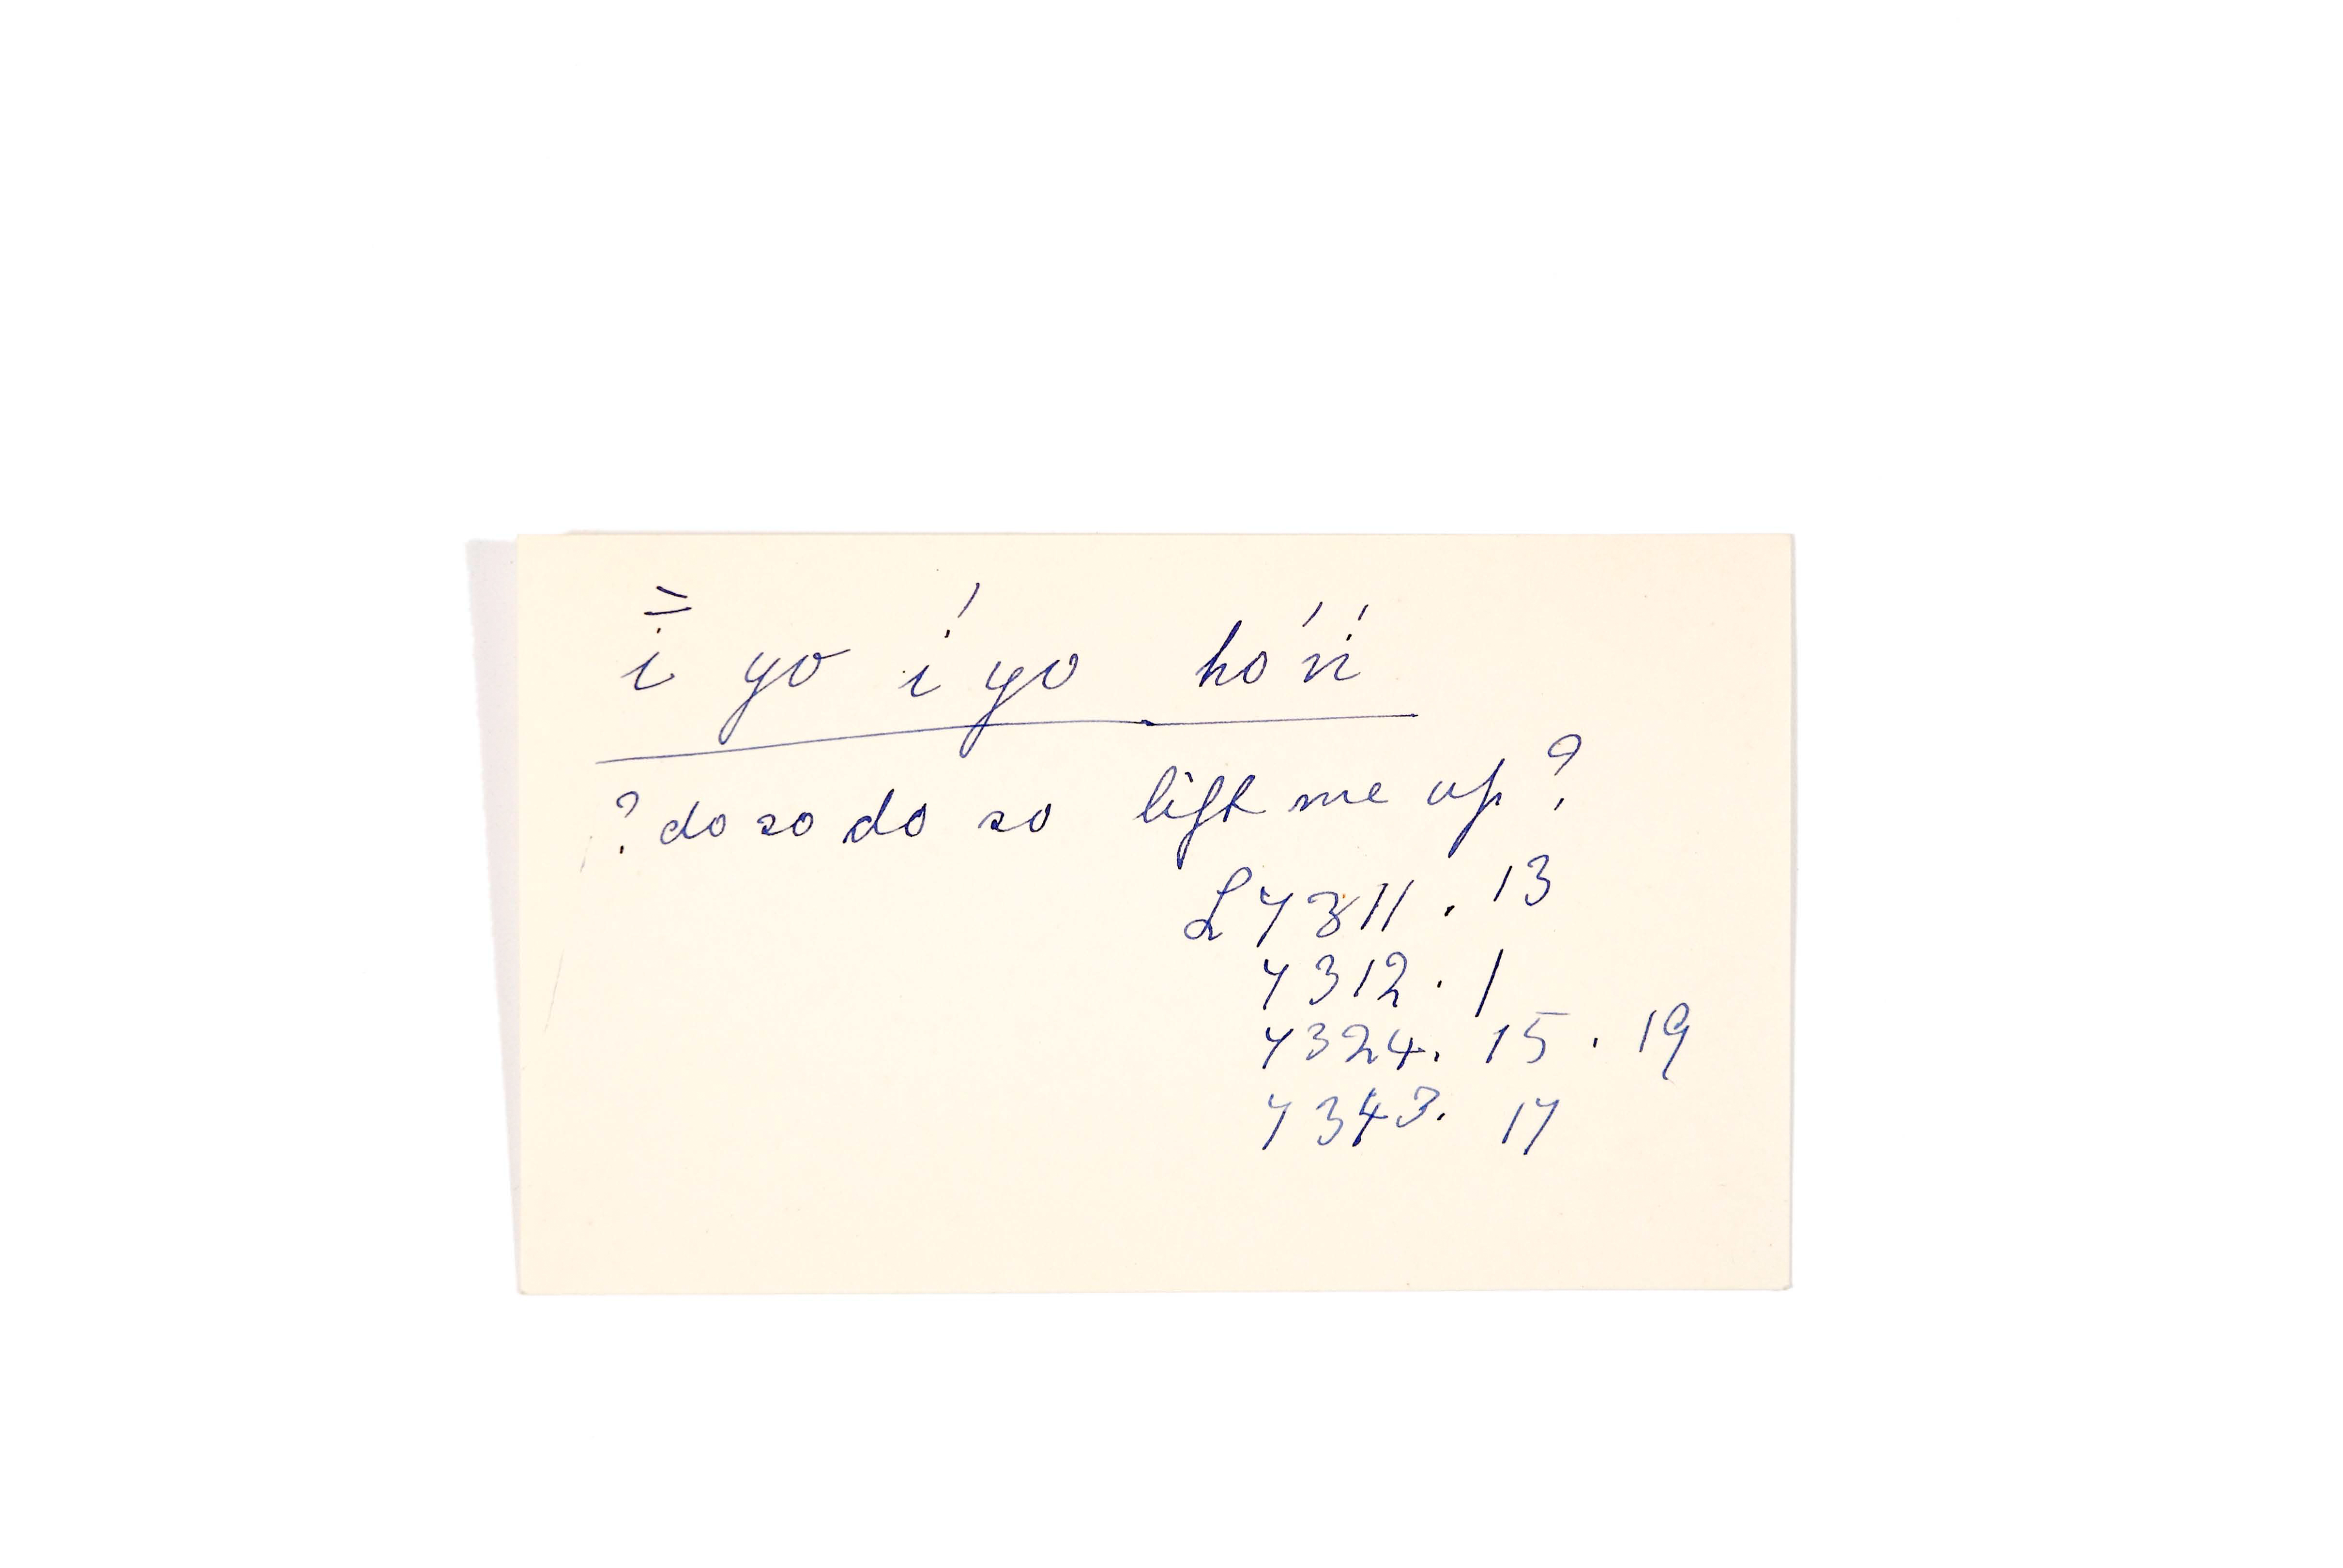 ī̀ yo í yo hó ń í
? do so do so lift me up ?
L 7311 . 13
7312 . 1
7324 . 15 . 19
7343 . 17